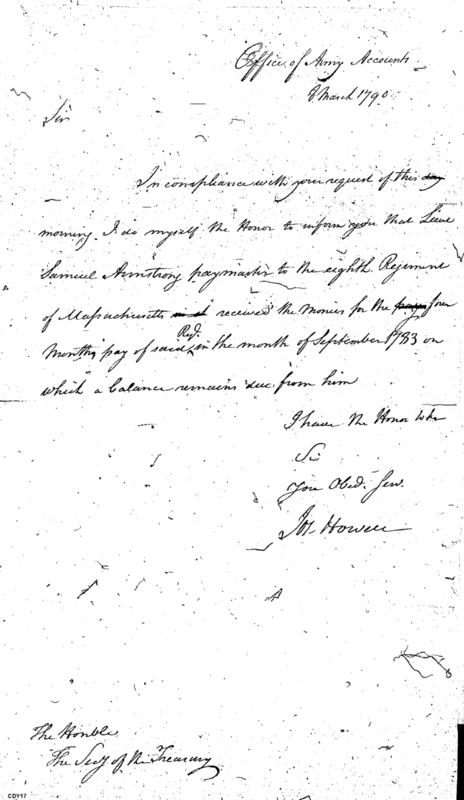 Office of Army Accounts
8 March 1790
Sir
In compliance with your request of this day
morning I do myself the Honor to inform you that Lieut
Samuel Armstrong paymaster to the eighth Regiment
of Massachusetts received the monies for the four
Months pay of said Regt. in the month of September 1783 on
which a balance remains due from him
I have the Honor to be
Sir
Your Obed. Serv.
Jos Howell
The Honble.
The Secy of the Treasury
CDY17